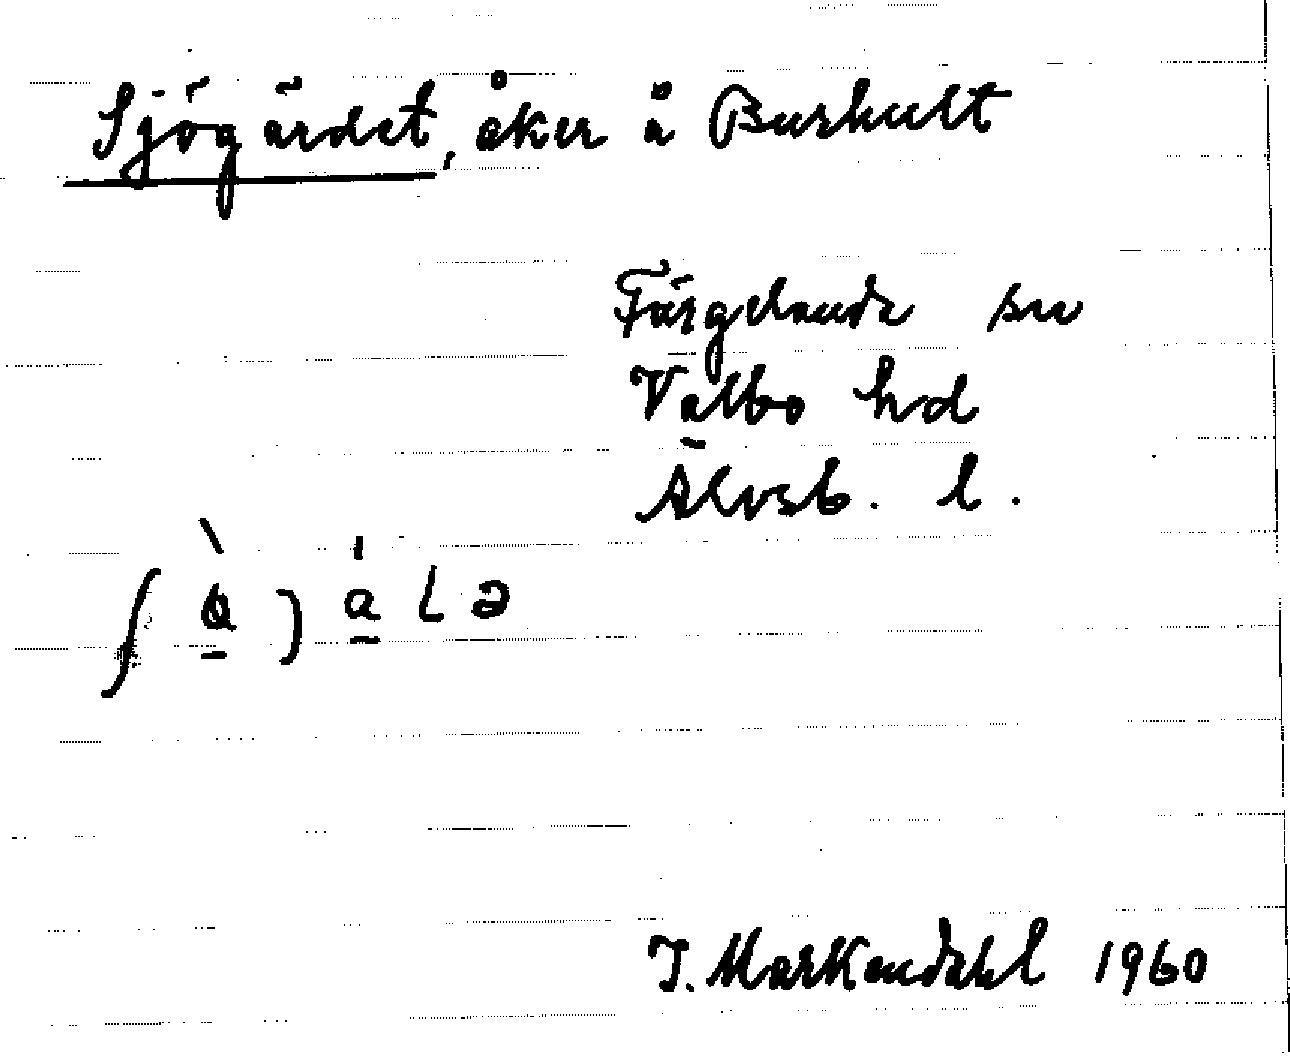 Sjögärdet, åker å Burhult
Färgelanda sn
Valbo hd
Älvsb. l.
J. Markendahl 1960